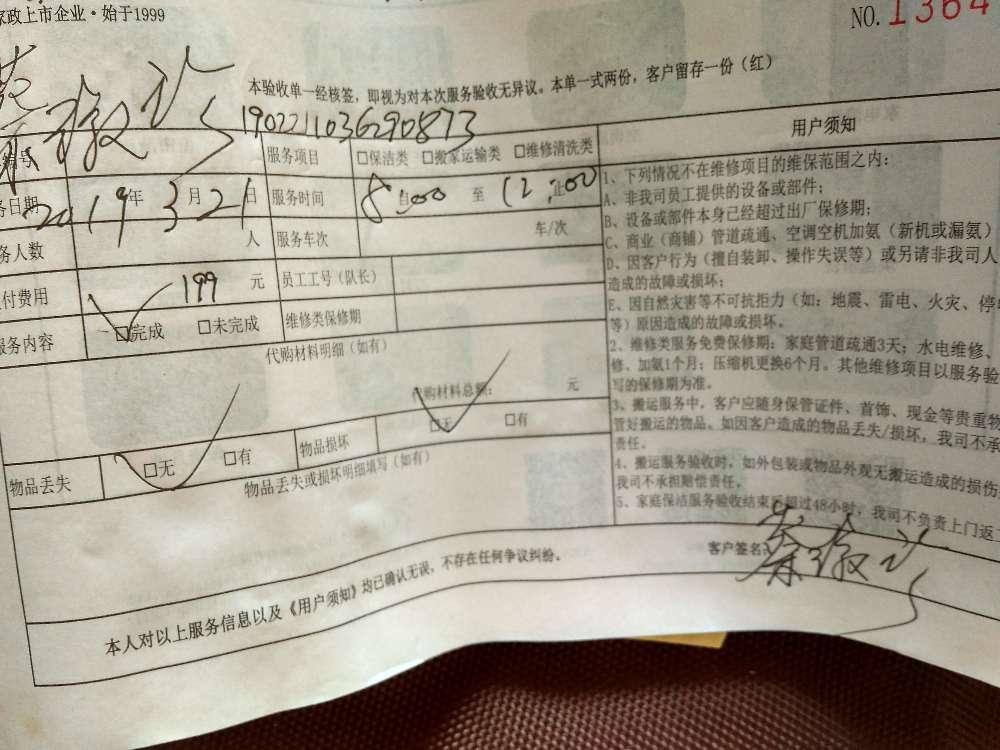 家政上市企业·始于1999
NO.1364
本验收单一经核签，即视为对本次服务验收无异议。本单一式两份，客户留存一份（红）
1902211036290873
编号 服务项目 □保洁类 □搬家运输类 □维修清洗类
务日期 2019年3月21日 服务时间 8自:00 至 12:止00
务人数 人 服务车次 车/次
付费用 199 元 员工工号（队长）
服务内容 □完成 □未完成 维修类保修期
代购材料明细（如有）
代购材料总额： 元
物品丢失 □无 □有 物品损坏 □无 □有
物品丢失或损坏明细填写（如有）
用户须知
1、下列情况不在维修项目的维保范围之内：
A、非我司员工提供的设备或部件；
B、设备或部件本身已经超过出厂保修期；
C、商业（商铺）管道疏通、空调空机加氨（新机或漏氨）
D、因客户行为（擅自装卸、操作失误等）或另请非我司人
造成的故障或损坏；
E、因自然灾害等不可抗拒力（如：地震、雷电、火灾、停
等）原因造成的故障或损坏。
2、维修类服务免费保修期：家庭管道疏通3天；水电维修、
修、加氨1个月；压缩机更换6个月。其他维修项目以服务验
写的保修期为准。
3、搬运服务中，客户应随身保管证件、首饰、现金等贵重物
管好搬运的物品。如因客户造成的物品丢失/损坏，我司不承
责任。
4、搬运服务验收时，如外包装或物品外观无搬运造成的损伤
我司不承担赔偿责任。
5、家庭保洁服务验收结束后超过48小时，我司不负责上门返
客户签名：
本人对以上服务信息以及《用户须知》均已确认无误，不存在任何争议纠纷。